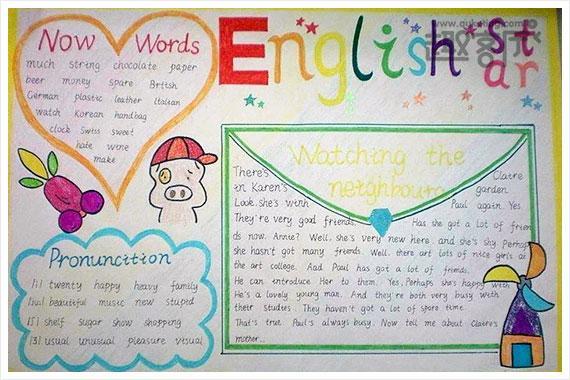 Now Words
much string chocolate paper
beer money spare British
German plastic leather Italian
watch Korean handbag
clock Swiss sweet
hate wine
make
English Star
Watching the
neighbours
There's Claire
in Karen's garden.
Look, she's with Paul again. Yes.
They're very good friends. Has she got a lot of frien
ds now. Annie? Well, she's very new here. and she's shy. Perhaps
she hasn't got many friends. Well, there are lots of nice girls at
the art college. And Paul has got a lot of friends.
He can introduce Her to them. Yes, Perhaps she's happy with
He's a lovely young man. And they're both very busy with
their studies. They haven't got a lot of spare time.
That's true. Paul's always busy. Now tell me about Claire's
mother...
Pronuncition
[i] twenty happy heavy family
[ju:] beautiful music new stupid
[ʃ] shelf sugar show shopping
[ʒ] usual unusual pleasure visual